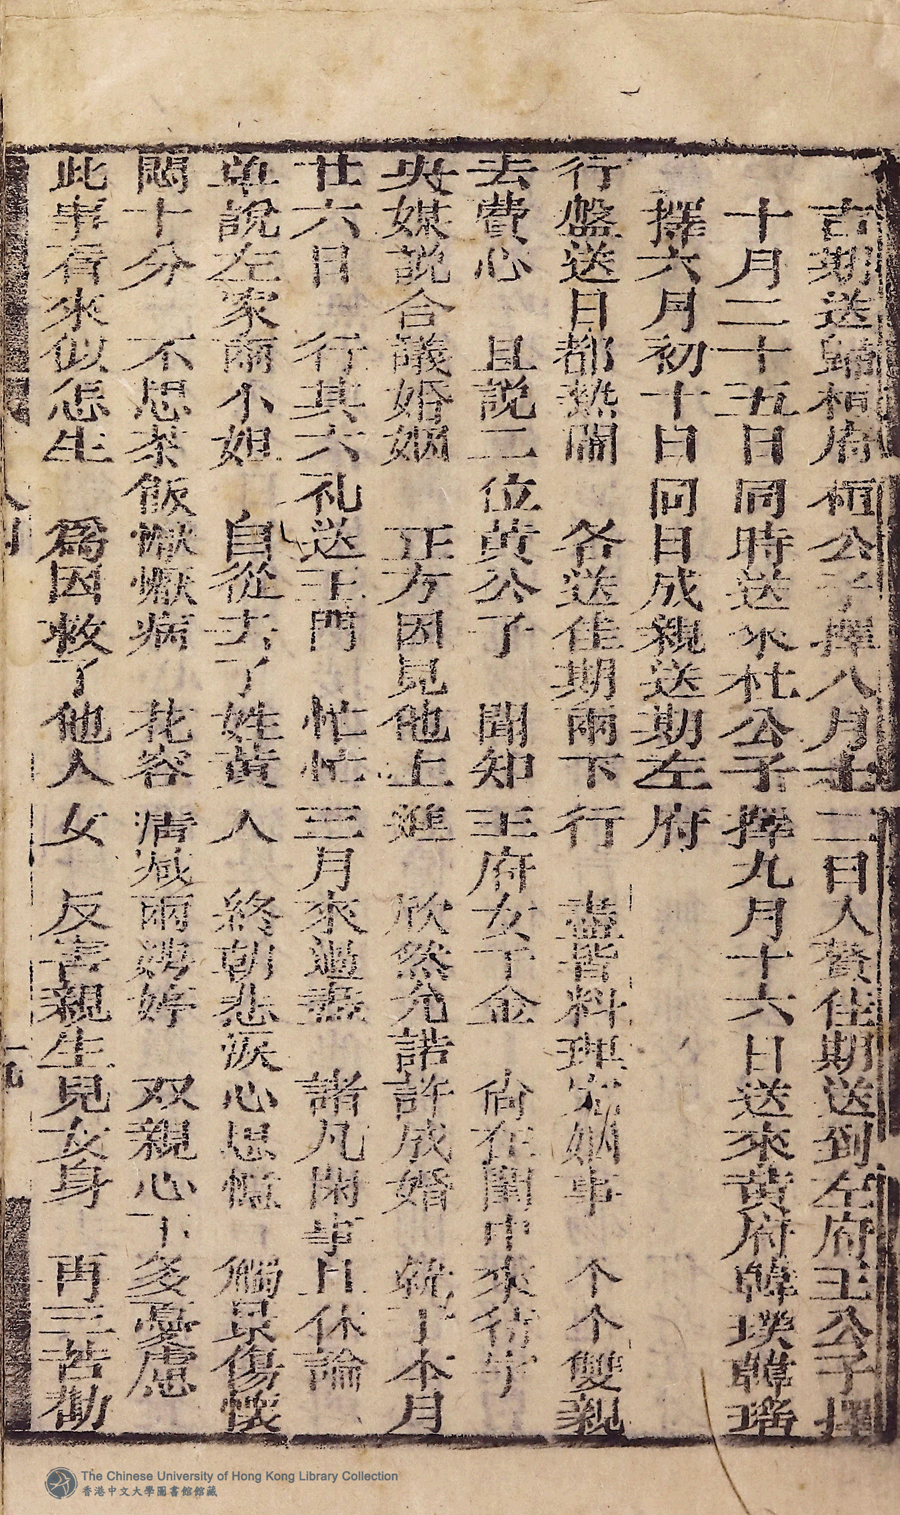 吉期送歸桓府桓公子擇八月十二日入贅佳期送到左府王公子擇
十月二十五日同時送來杜公子擇九月十六日送來黃府韓璞韓瑤
擇六月初十日同日成親送期左府
行盤送日都熱鬧　各送佳期兩下行　盡皆料理完姻事　个个雙親
去費心　且説二位黃公了　聞知王府女千金　尚在閨中來待字
央媒說合議婚姻　正方因見他上進　欣然允諾許成婚　就于本月
廿六日　行其六礼送王門　忙忙三月來過盡　諸凡閑事且休論
單說左家兩小姐　自從去了姓黃人　終朝悲淚心思憶　觸景傷懷
悶十分　不思茶飯懨懨病　花容清减兩娉婷　双親心下多憂慮
此事看來似怎生　爲因救了他人女　反害親生兒女身　再三苦勸
The Chinese University of Hong Kong Library Collection
香港中文大學圖書館館藏